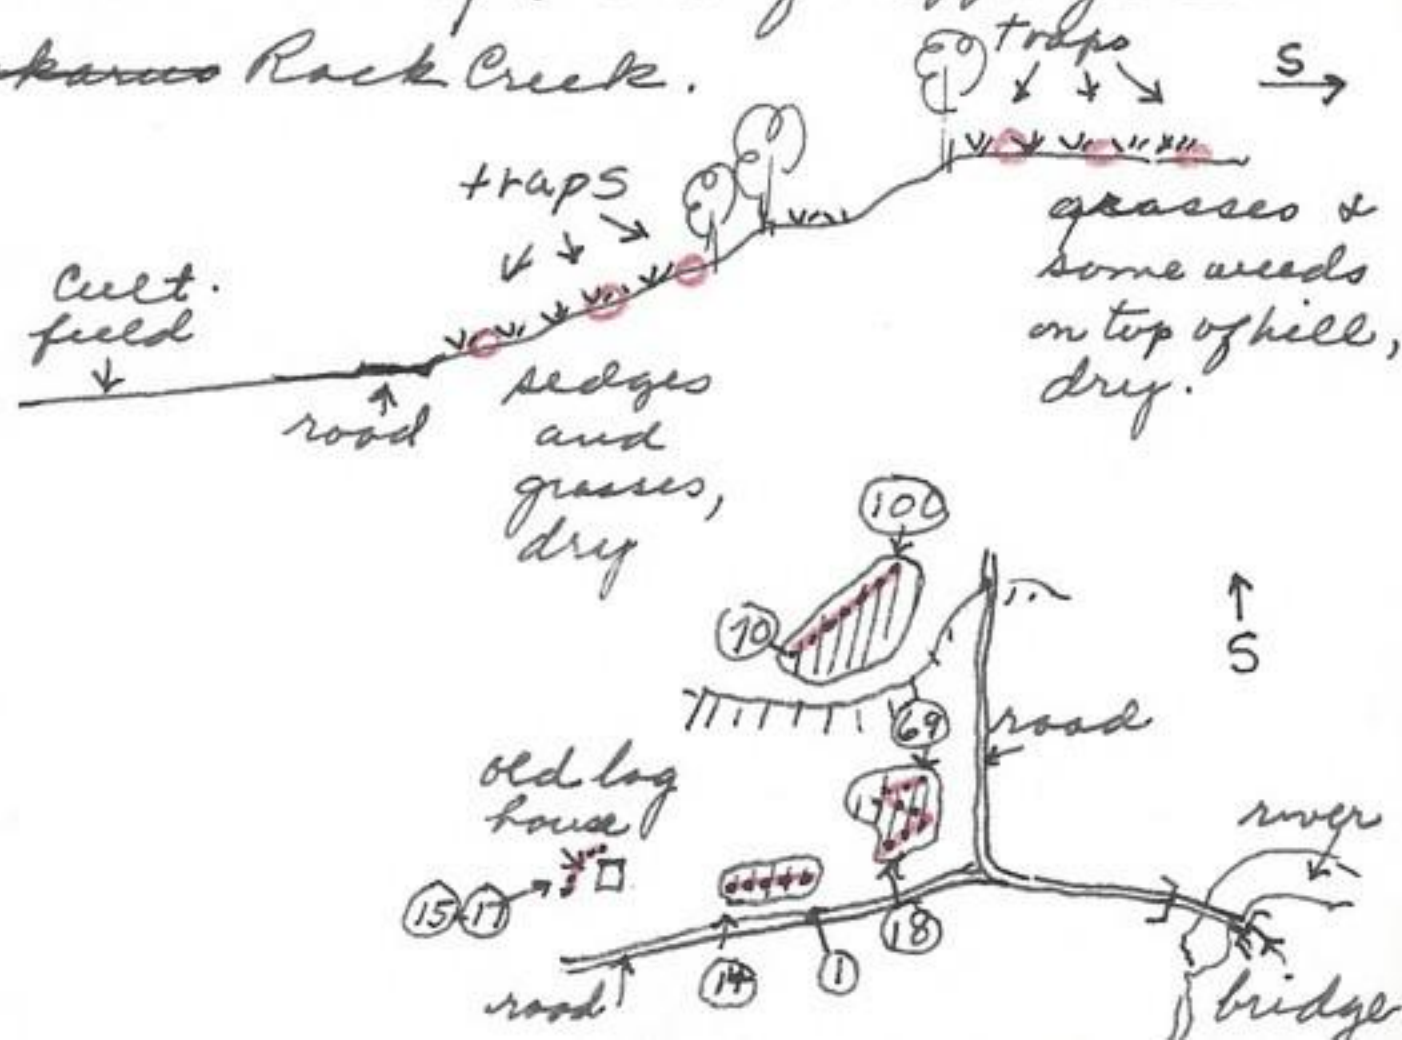 Rock Creek.
traps
S
traps
grasses &
some weeds
on top of hill,
dry.
Cult.
field
road
sedges
and
grasses,
dry
100
70
S
69
road
old log
house
river
15-17
18
14
1
road
bridge